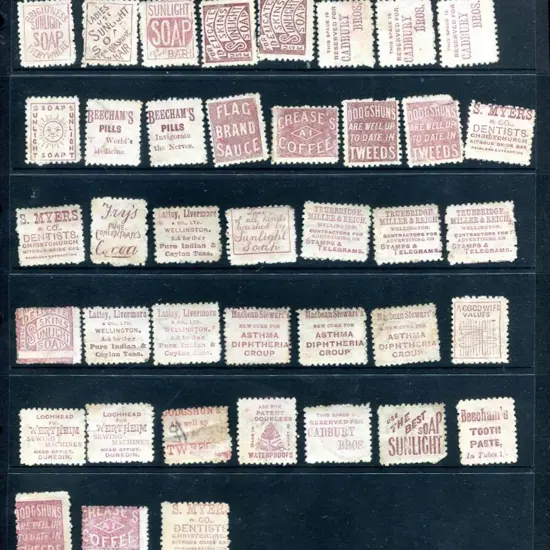 SUNLIGHT
SOAP
LADIES
SUNLIGHT
SOAP
SUNLIGHT
SOAP
SUNLIGHT
SOAP
SUNLIGHT
SOAP
THIS SPACE IS
RESERVED FOR
CADBURY
BROS.
THIS SPACE IS
RESERVED FOR
CADBURY
BROS.
THIS SPACE IS
RESERVED FOR
CADBURY
BROS.
SOAP
SUNLIGHT
SUNLIGHT
SOAP
BEECHAM'S
PILLS
World's
Medicine.
BEECHAM'S
PILLS
Invigorate
the Nerves.
FLAG
BRAND
SAUCE
CREASE'S
A1
COFFEE
DODGSHUNS
ARE WELL UP
TO DATE IN
TWEEDS
DODGSHUNS
ARE WELL UP
TO DATE IN
TWEEDS
S. MYERS
& CO.,
DENTISTS,
CHRISTCHURCH
NITROUS OXIDE GAS
PAINLESS EXTRACTION
S. MYERS
& CO.,
DENTISTS,
CHRISTCHURCH
NITROUS OXIDE GAS
PAINLESS EXTRACTION
Fry's
PURE
CONCENTRATED
Cocoa
Lattey, Livermore
& CO., LTD.
WELLINGTON,
Ask for Our
Pure Indian &
Ceylon Teas.
of all kinds
washed by
Sunlight
Soap
TRUEBRIDGE,
MILLER & REICH,
WELLINGTON.
CONTRACTORS FOR
ADVERTISING ON
STAMPS &
TELEGRAMS.
TRUEBRIDGE,
MILLER & REICH,
WELLINGTON.
CONTRACTORS FOR
ADVERTISING ON
STAMPS &
TELEGRAMS.
TRUEBRIDGE,
MILLER & REICH,
WELLINGTON.
CONTRACTORS FOR
ADVERTISING ON
STAMPS &
TELEGRAMS.
SOAP
Lattey, Livermore
& CO., LTD.
WELLINGTON,
Ask for Our
Pure Indian &
Ceylon Teas.
Lattey, Livermore
& CO., LTD.
WELLINGTON,
Ask for Our
Pure Indian &
Ceylon Teas.
Macbean Stewart's
NEW CURE FOR
ASTHMA
DIPHTHERIA
CROUP
Macbean Stewart's
NEW CURE FOR
ASTHMA
DIPHTHERIA
CROUP
Macbean Stewart's
NEW CURE FOR
ASTHMA
DIPHTHERIA
CROUP
A GOOD WIFE
VALUES
LOCHHEAD
FOR
WERTHEIM
SEWING
MACHINES
HEAD OFFICE,
DUNEDIN.
LOCHHEAD
FOR
WERTHEIM
SEWING
MACHINES
HEAD OFFICE,
DUNEDIN.
DODGSHUN'S
well up
TWEE
ASK FOR
PATENT
ODOURLESS
WATERPROOFS
THIS SPACE I
RESERVED FOR
CADBURY
BROS
USE
THE BEST
SOAP
SUNLIGHT
Beecham's
TOOTH
PASTE,
In Tubes 1/-
DODGSHUNS
ARE WELL UP
TO DATE IN
TWEEDS
CREASE'S
A1
COFFEE
S. MYERS
& CO.,
DENTISTS
CHRISTCHURCH
NITROUS OXIDE GAS